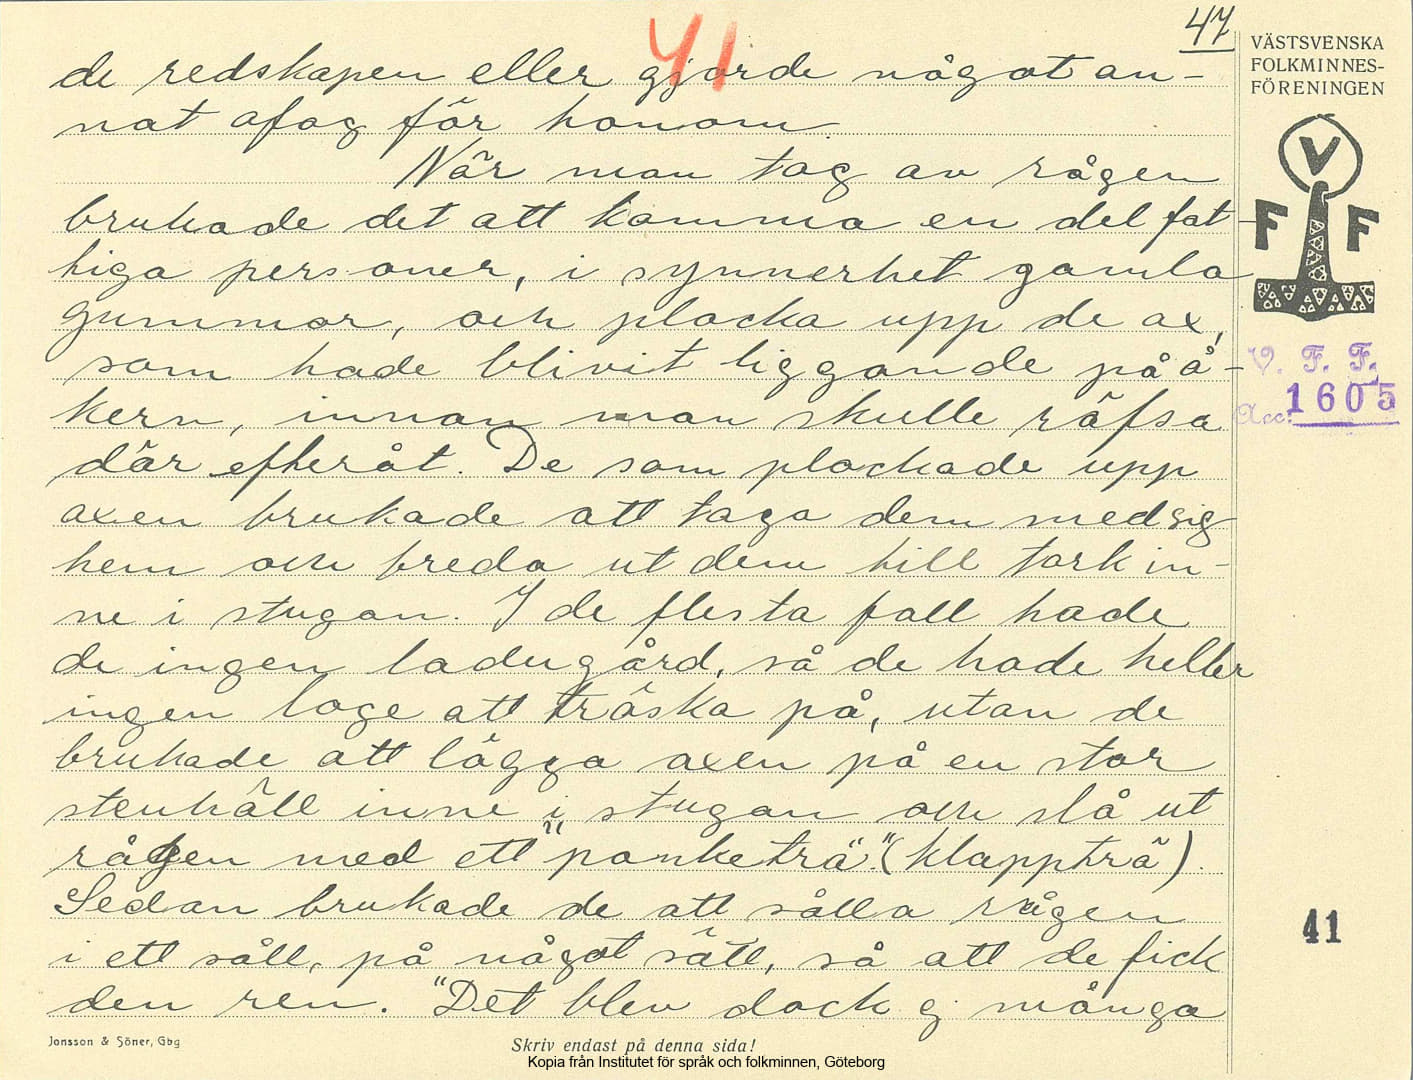 47
41
VÄSTSVENSKA
FOLKMINNES-
FÖRENINGEN
V
F F
V. F. F.
Acc. 1605
de redskapen eller gjorde något an-
nat ofog för honom.
När man tog av rågen
brukade det att komma en del fat-
tiga personer, i synnerhet gamla
gummor, och plocka upp de ax,
som hade blivit liggande på å-
kern, innan man skulle räfsa
där efteråt. De som plockade upp
axen brukade att taga dem med sig
hem och breda ut dem till tork in-
ne i stugan. I de flesta fall hade
de ingen ladugård, så de hade heller
ingen loge att tröska på, utan de
brukade att lägga axen på en stor
stenhäll inne i stugan och slå ut
rågen med ett "panketrä". (klappträ).
Sedan brukade de att sålla rågen
i ett såll, på något sätt, så att de fick
den ren. "Det blev dock ej många
41
Jonsson & Söner, Gbg
Skriv endast på denna sida!
Kopia från Institutet för språk och folkminnen, Göteborg